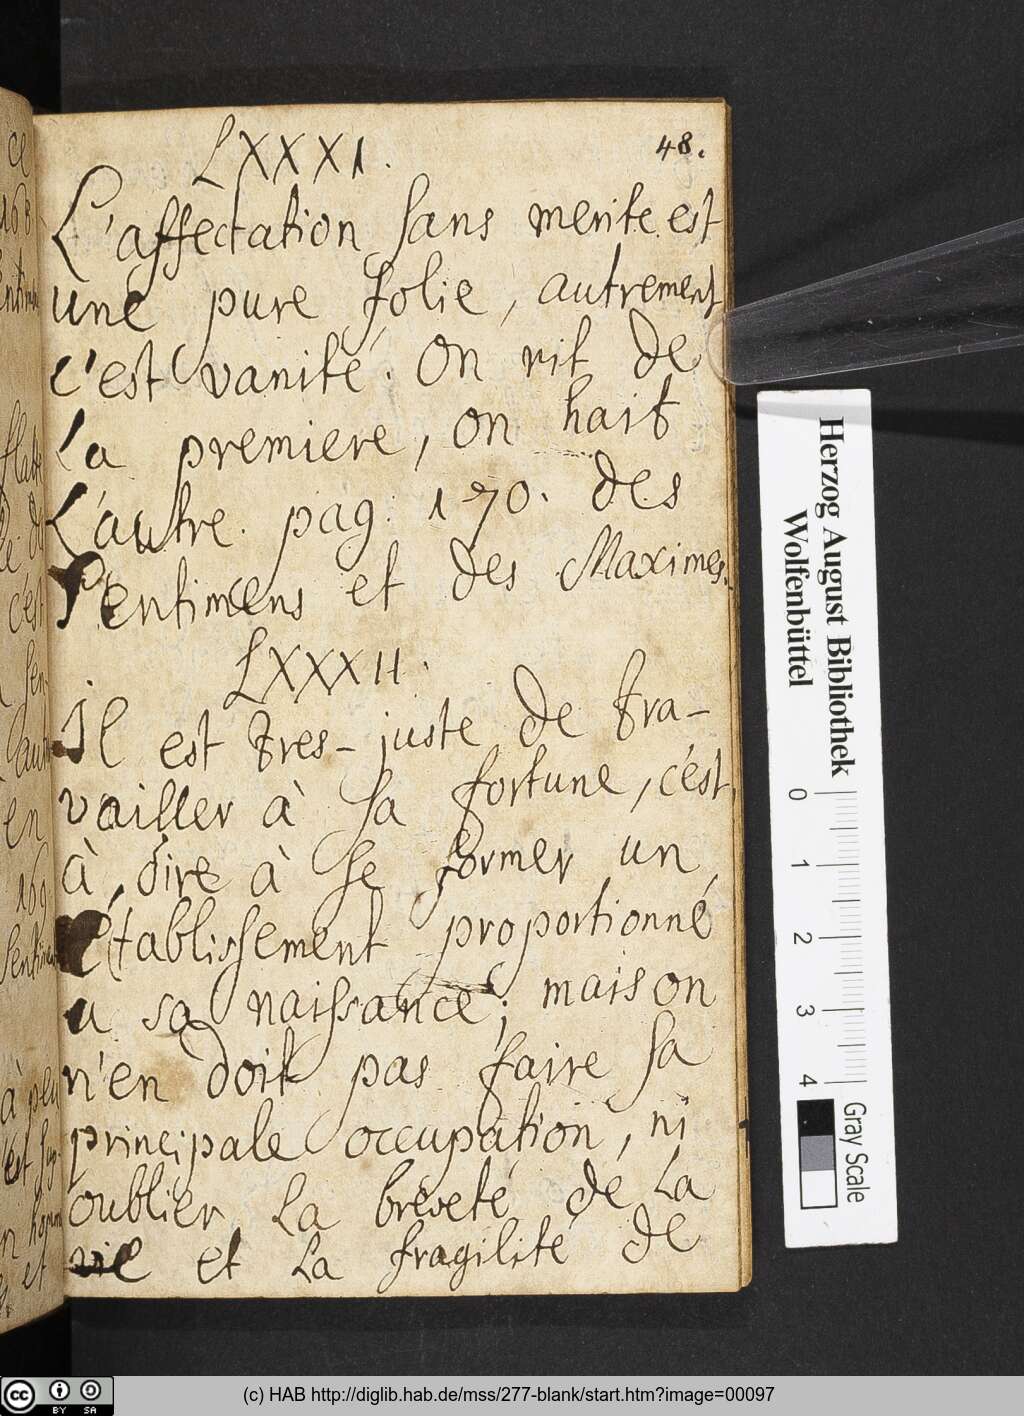 48.
LXXXI.
L'affectation sans merite est
une pure folie, autrement
c'est vanité. On rit de
La premiere, on hait
L'autre. pag. 170. des
Sentimens et des Maximes.
LXXXII.
Il est tres-juste de tra-
vailler à sa fortune, c'est
à dire à se former un
établissement proportionné
a sa naissance; mais on
n'en doit pas faire sa
principale occupation, ni
oublier La breveté de La
vie et La fragilité de
Herzog August Bibliothek
Wolfenbüttel
0 1 2 3 4
Gray Scale
cc BY SA
(c) HAB http://diglib.hab.de/mss/277-blank/start.htm?image=00097